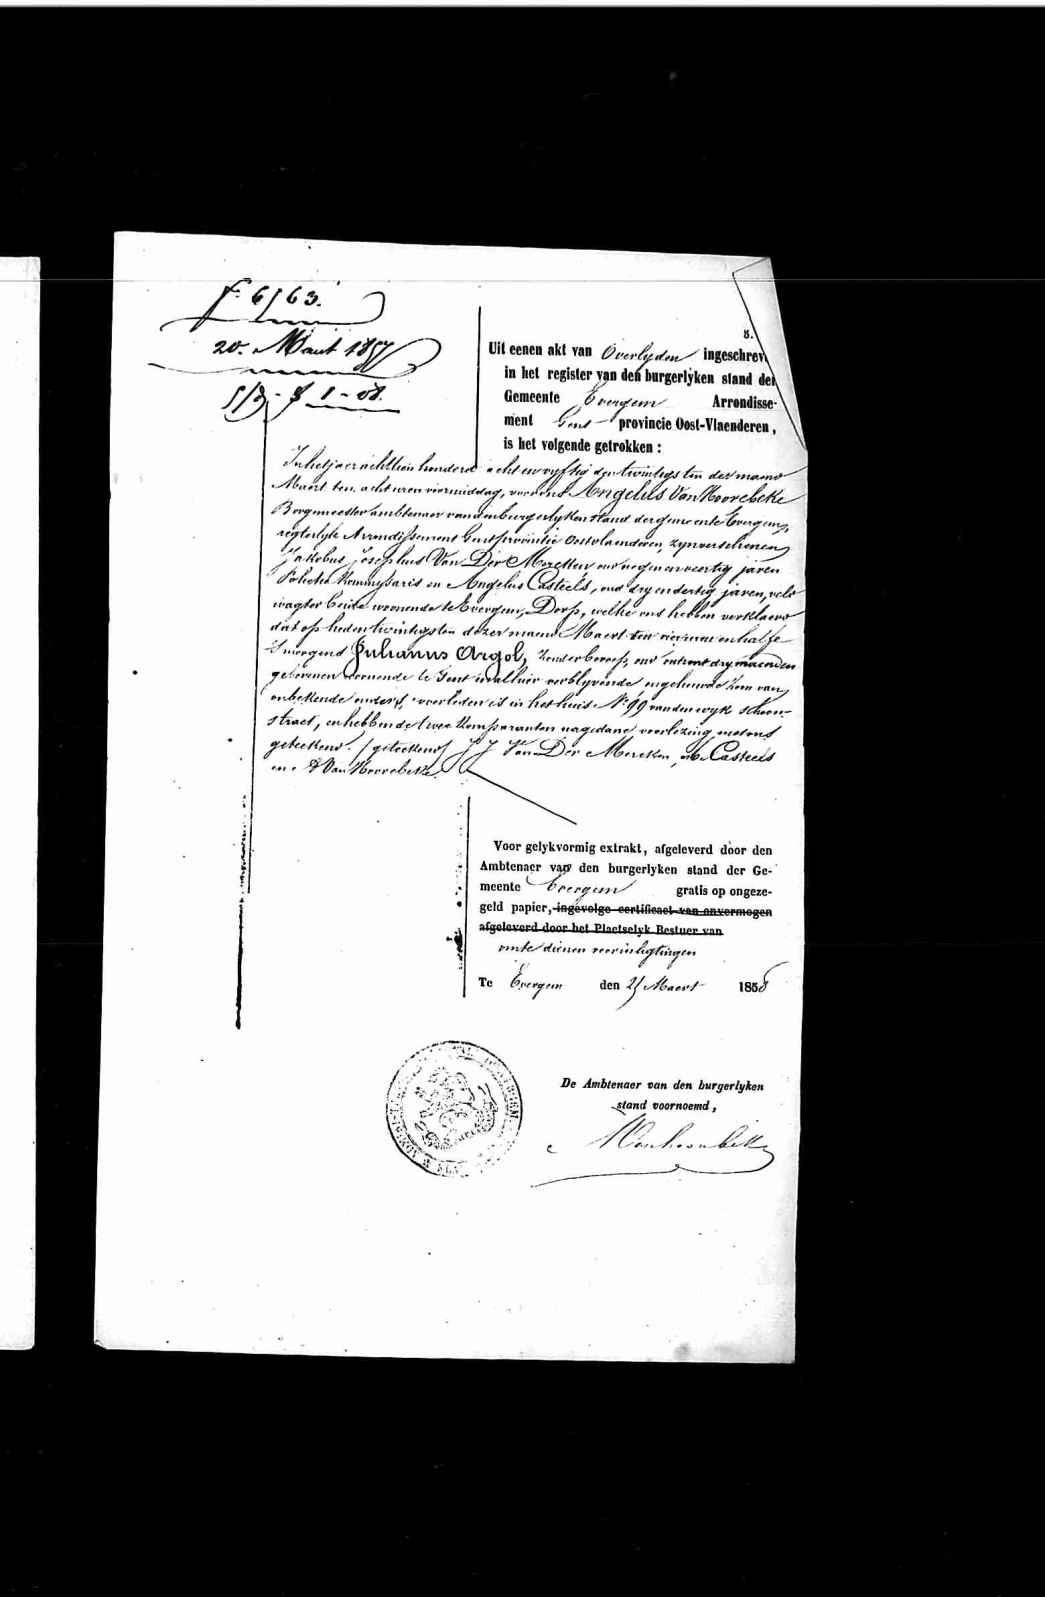 F. 6/63.
20. Maart 1857
8.
Uit eenen akt van Overlyden ingeschrev
in het register van den burgerlyken stand der
Gemeente Evergem Arrondisse-
ment Gent provincie Oost-Vlaenderen,
is het volgende getrokken :
In het jaer achttien honderd acht en vyftig den twintigsten der maand
Maert ten acht uren voormiddag, voor ons Angelus Van Hoorebeke
Borgmeester ambtenaer van den burgerlyken stand der gemeente Evergem,
regterlyk Arrondissement Gent provintie Oostvlaenderen, zyn verschenen
Jakobus Josephus Van Der Mercken oud negen en veertig jaren
Policie Kommissaris en Angelus Casteels, oud dry en dertig jaren, veld
wagter beide woonende te Evergem, Dorp, welke ons hebben verklaerd
dat op heden twintigsten dezer maend Maert ten vier uren en half
s'morgend Julianus Argol, zonder beroep, oud omtrent dry maenden
geboren en woonende te Gent en alhier verblyvende ongehuwde zoon van
onbekende ouders, overleden is in het huis N.º 99 van den wyk schoon-
straet, en hebben de twee komparanten na gedane voorlezing met ons
geteekend. (geteekend) J J Van Der Mercken, A. Casteels
en A Van Hoorebeke.
Voor gelykvormig extrakt, afgeleverd door den
Ambtenaer van den burgerlyken stand der Ge-
meente Evergem gratis op ongeze-
geld papier, ingevolge certificaet van onvermogen
afgeleverd door het Plaetselyk Bestuer van
om te dienen voor inligtingen
Te Evergem den 21 Maert 1858
De Ambtenaer van den burgerlyken
stand voornoemd,
A Vanhoorebeke